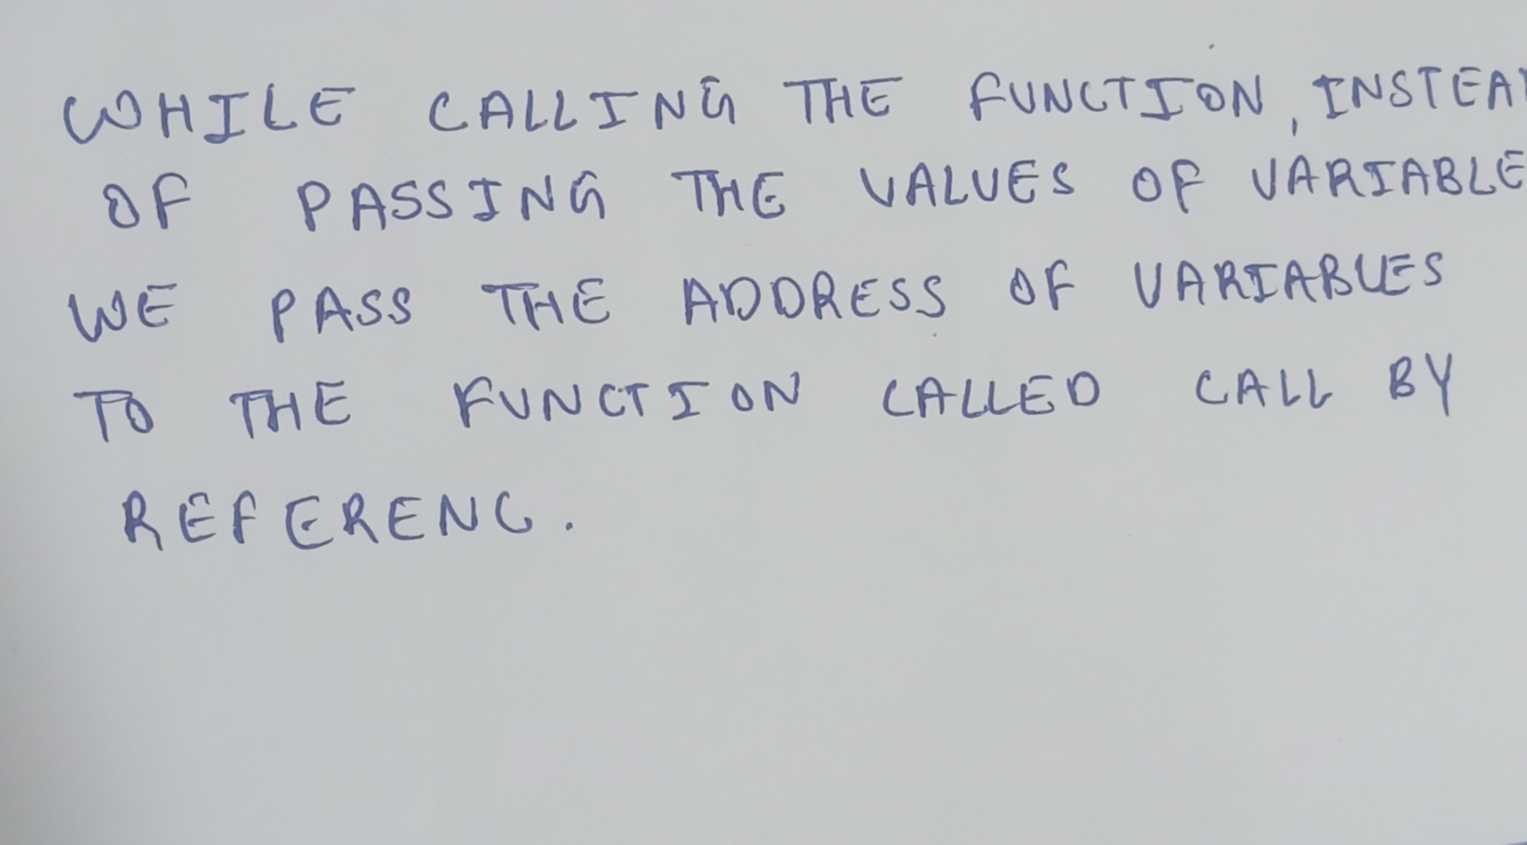 WHILE CALLING THE FUNCTION, INSTEAD
OF PASSING THE VALUES OF VARIABLE
WE PASS THE ADDRESS OF VARIABLES
TO THE FUNCTION CALLED CALL BY
REFERENC.